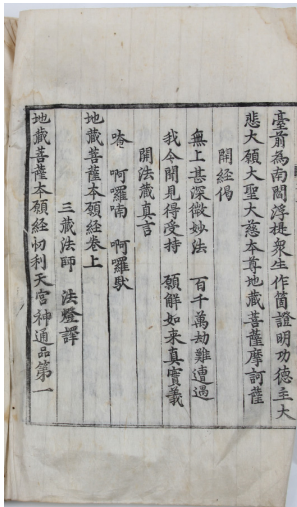 臺前為南閻浮提衆生作箇證明功德主大
悲大願大聖大慈本尊地藏菩薩摩訶薩
開經偈
無上甚深微妙法 百千萬劫難遭遇
我今聞見得受持 願解如来真實義
開法藏真言
唵 啊囉喃 啊囉馱
地藏菩薩本願經卷上
三藏法師 法燈譯
地藏菩薩本願經忉利天宮神通品第一